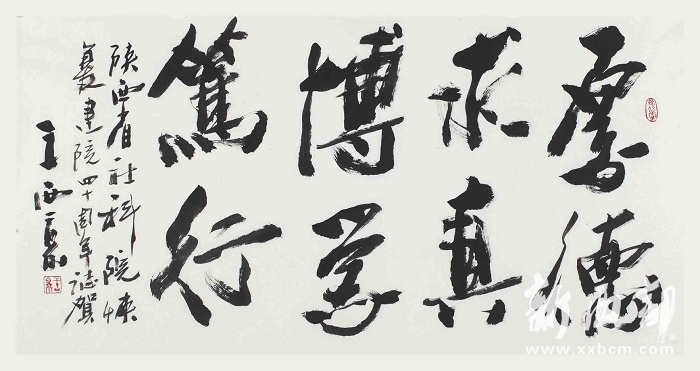 厚德
求真
博学
篤行
陕西省社科院恢
复建院四十周年誌賀
王西京
新西部
www.xxbcm.com